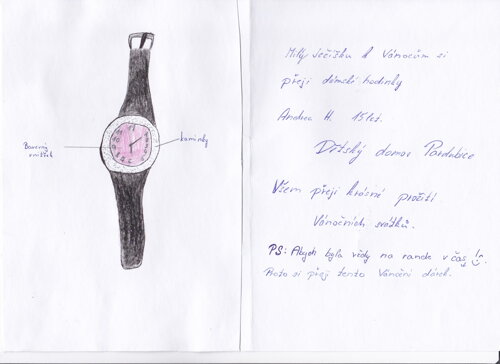 Barevný
vnitřek
kamínky
Milý Ježíšku k Vánocům si
přeji dámské hodinky
Andrea H. 15 let.
Dětský domov Pardubice
Všem přeji krásné prožití
Vánočních svátků.
PS: Abych byla vždy na rande v čas!
Proto si přeji tento Vánoční dárek.